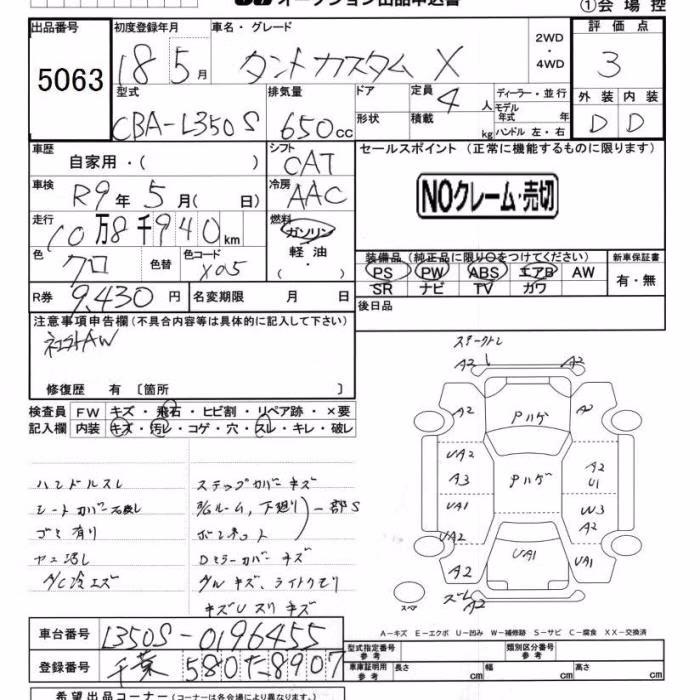 オークション出品申込書
①会場控
出品番号
5063
初度登録年月
18 5月
車名・グレード
タントカスタム X
2WD
・
4WD
評価点
3
型式
CBA-L350S
排気量
650cc
ドア
形状
定員
4人
積載
kg
ディーラー・並行
モデル年式 年
ハンドル 左・右
外装 内装
D D
車歴
自家用・( )
シフト
CAT
セールスポイント (正常に機能するものに限ります)
NOクレーム・売切
車検
R9年5月( 日)
冷房
AAC
走行
10万8千940km
燃料
ガソリン
軽油
( ・ )
色
クロ
色替
色コード
X05
装備品(純正品に限り○をつけてください)
PS PW ABS エアB AW
SR ナビ TV カワ
新車保証書
有・無
R券 9,430円
名変期限 月 日
後日品
注意事項申告欄(不具合内容等は具体的に記入して下さい)
社外AW
修復歴 有 〔箇所 〕
検査員
記入欄
FW キズ・飛石・ヒビ割・リペア跡・×要
内装 キズ・汚レ・コゲ・穴・スレ・キレ・破レ
ハンドルスレ
シートカバー
ゴミ有り
ヤニ汚レ
A/C冷エズ
ステップカバーキズ
ルーム、下廻り 一部S
ボンネット
Dミラーカバーキズ
グルキズ、ライトクモリ
A2 A2
A2 Pハゲ A2
UA2
A3 Pハゲ A2
U1
UA1 W3
A2
UA2
A2 UA1 UA1
ズレ A2
スペア
A-キズ E-エクボ U-凹み W-補修跡 S-サビ C-腐食 XX-交換済
車台番号
L350S-0196455
登録番号
千葉 580 た 8907
型式指定番号
参考
類別区分番号
参考
車庫証明用
参考
長さ cm 幅 cm 高さ cm
希望出品コーナー(コーナーは各会場により異なります。)